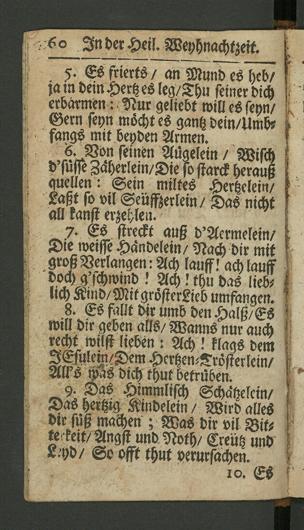 60 In der Heil. Weyhnachtzeit.
5. Es frierts/ an Mund es heb/
ja in dein Hertz es leg/ Thu seiner dich
erbarmen: Nur geliebt will es seyn/
Gern seyn möcht es gantz dein/ Umb-
fangs mit beyden Armen.
6. Von seinen Äugelein/ Wisch
d'süsse Zäherlein/ Die so starck herauß
quellen: Sein miltes Hertzelein/
Laßt so vil Seüffzerlein/ Das nicht
all kanst erzehlen.
7. Es streckt auß d'Aermelein/
Die weisse Händelein/ Nach dir mit
groß Verlangen: Ach lauff! ach lauff
doch g'schwind! Ach! thu das lieb-
lich Kind/ Mit gröster Lieb umfangen.
8. Es fallt dir umb den Halß/ Es
will dir geben alls/ Wanns nur auch
recht wilst lieben: Ach! klags dem
JEsulein/ Dem Hertzen-Trösterlein/
All's was dich thut betrüben.
9. Das Himmlisch Schätzelein/
Das hertzig Kindelein/ Wird alles
dir süß machen; Was dir vil Bit-
terkeit/ Angst und Noth/ Creütz und
Leyd/ So offt thut verursachen.
10. Es